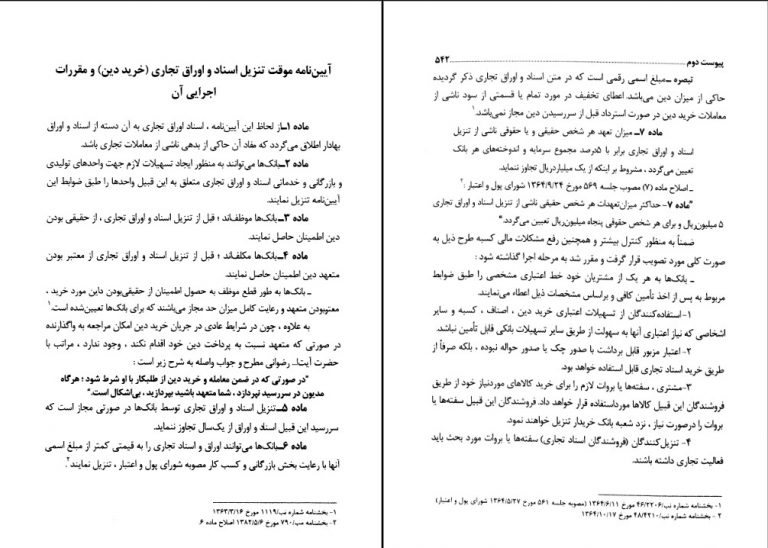 آیین‌نامه موقت تنزیل اسناد و اوراق تجاری (خرید دین) و مقررات
اجرایی آن
ماده ۱ـ از لحاظ این آیین‌نامه ، اسناد اوراق تجاری به آن دسته از اسناد و اوراق
بهادار اطلاق می‌گردد که مفاد آن حاکی از بدهی ناشی از معاملات تجاری باشد.
ماده ۲ـ بانک‌ها می‌توانند به منظور ایجاد تسهیلات لازم جهت واحدهای تولیدی
و بازرگانی و خدماتی اسناد و اوراق تجاری متعلق به این قبیل واحدها را طبق ضوابط این
آیین‌نامه تنزیل نمایند.
ماده ۳ـ بانک‌ها موظف‌اند ؛ قبل از تنزیل اسناد و اوراق تجاری ، از حقیقی بودن
دین اطمینان حاصل نمایند.
ماده ۴ـ بانک‌ها مکلف‌اند ؛ قبل از تنزیل اسناد و اوراق تجاری از معتبر بودن
متعهد دین اطمینان حاصل نمایند.
ـ بانک‌ها به طور قطع موظف به حصول اطمینان از حقیقی‌بودن داین مورد خرید ،
معتبربودن متعهد و رعایت کامل میزان حد مجاز می‌باشند که برای بانک‌ها تعیین‌شده است.۱
به علاوه ، چون در شرایط عادی در جریان خرید دین امکان مراجعه به واگذارنده
در صورتی که متعهد نسبت به پرداخت دین خود اقدام نکند ، وجود ندارد ، مراتب با
حضرت آیت‌ا... رضوانی مطرح و جواب واصله به شرح زیر است :
"در صورتی که در ضمن معامله و خرید دین از طلبکار با او شرط شود ؛ هرگاه
مدیون در سررسید نپردازد ، شما متعهد باشید بپردازید ، بی‌اشکال است."
ماده ۵ـ تنزیل اسناد و اوراق تجاری توسط بانک‌ها در صورتی مجاز است که
سررسید این قبیل اسناد و اوراق از یک‌سال تجاوز ننماید.
ماده ۶ـ بانک‌ها می‌توانند اوراق و اسناد تجاری را به قیمتی کمتر از مبلغ اسمی
آنها با رعایت بخش بازرگانی و کسب کار مصوبه شورای پول و اعتبار ، تنزیل نمایند.۲
۱- بخشنامه شماره نب/۱۱۱۹ مورخ ۱۳۶۳/۳/۱۶
۲- بخشنامه مب/۷۹۰ مورخ ۱۳۸۲/۵/۶ اصلاح ماده ۶
پیوست دوم ۵۴۲
تبصره ـ مبلغ اسمی رقمی است که در متن اسناد و اوراق تجاری ذکر گردیده
حاکی از میزان دین می‌باشد. اعطای تخفیف در مورد تمام یا قسمتی از سود ناشی از
معاملات خرید دین در صورت استرداد قبل از سررسیدن دین مجاز نمی‌باشد.۱
ماده ۷ـ میزان تعهد هر شخص حقیقی و یا حقوقی ناشی از تنزیل
اسناد و اوراق تجاری برابر با ۵درصد مجموع سرمایه و اندوخته‌های هر بانک
تعیین می‌گردد ، مشروط بر اینکه از یک میلیاردریال تجاوز ننماید.
ـ اصلاح ماده (۷) مصوب جلسه ۵۶۹ مورخ ۱۳۶۴/۹/۲۴ شورای پول و اعتبار :۲
"ماده ۷- حداکثر میزان‌تعهدات هر شخص حقیقی ناشی از تنزیل اسناد و اوراق تجاری
۵ میلیون‌ریال و برای هر شخص حقوقی پنجاه میلیون‌ریال تعیین می‌گردد."
ضمناً به منظور کنترل بیشتر و همچنین رفع مشکلات مالی کسبه طرح ذیل به
صورت کلی مورد تصویب قرار گرفت و مقرر شد به مرحله اجرا گذاشته شود :
ـ بانک‌ها به هر یک از مشتریان خود خط اعتباری مشخصی را طبق ضوابط
مربوط به پس از اخذ تأمین کافی و براساس مشخصات ذیل اعطاء می‌نمایند.
۱-استفاده‌کنندگان از تسهیلات اعتباری خرید دین ، اصناف ، کسبه و سایر
اشخاصی که نیاز اعتباری آنها به سهولت از طریق سایر تسهیلات بانکی قابل تأمین نباشد.
۲-اعتبار مزبور قابل برداشت با صدور چک یا صدور حواله نبوده ، بلکه صرفاً از
طریق خرید اسناد تجاری قابل استفاده خواهد بود.
۳-مشتری ، سفته‌ها یا بروات لازم را برای خرید کالاهای موردنیاز خود از طریق
فروشندگان این قبیل کالاها مورداستفاده قرار خواهد داد. فروشندگان این قبیل سفته‌ها یا
بروات را درصورت نیاز ، نزد شعبه بانک خریدار تنزیل خواهند نمود.
۴- تنزیل‌کنندگان (فروشندگان اسناد تجاری) سفته‌ها یا بروات مورد بحث باید
فعالیت تجاری داشته باشند.
۱- بخشنامه شماره نب/۴۶/۲۲۰۶ مورخ ۱۳۶۴/۶/۱۱ (مصوبه جلسه ۵۶۱ مورخ ۱۳۶۴/۵/۲۷ شورای پول و اعتبار)
۲ - بخشنامه شماره نب/۴۸/۴۲۱۰ مورخ ۱۳۶۴/۱۰/۱۷